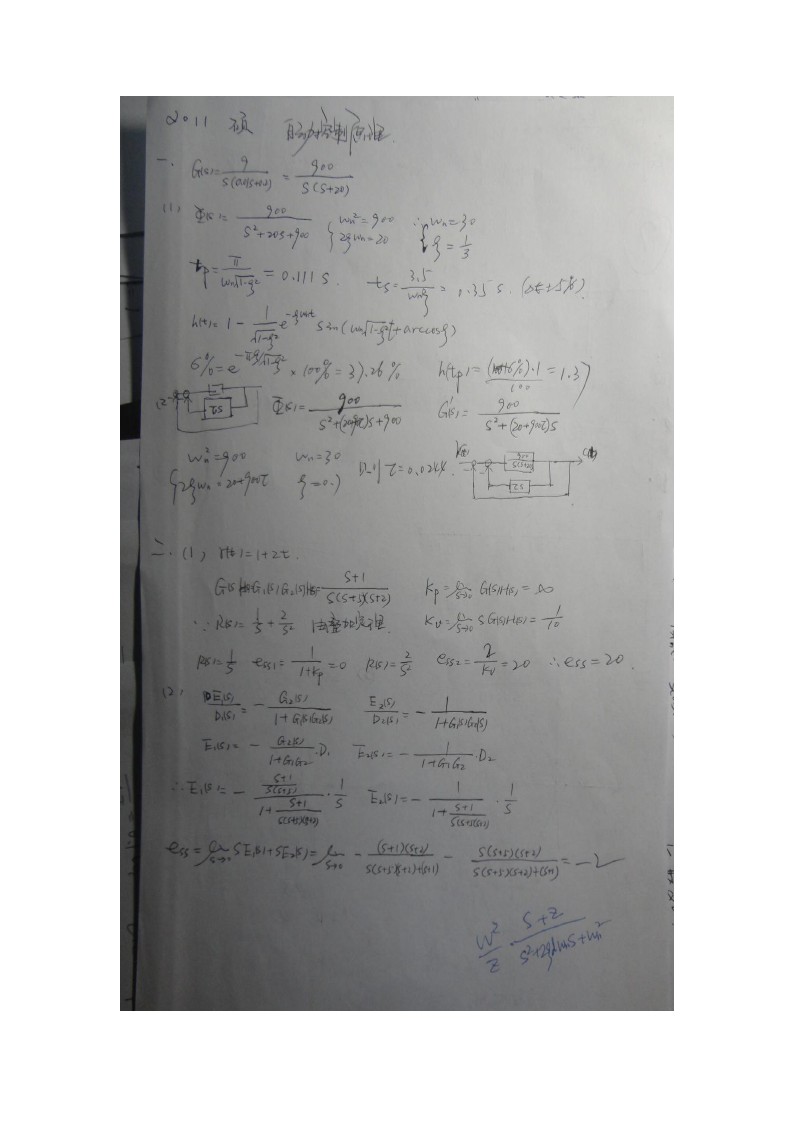 2011 硕 自动控制原理.
一. G(s)=9/(S(0.01S+0.2)) = 900/(S(S+20))
(1) Φ(s)=900/(S²+20S+900) {ωn²=900 2ξωn=20 ∴{ωn=30 ξ=1/3
tp=π/(ωn√1-ξ²)=0.111 S. ts=3.5/(ωnξ)=0.35 s. (Δ=±5%)
h(t)=1-1/√(1-ξ²) e^(-ξωnt) Sin(ωn√1-ξ² t+arccosξ)
σ%=e^(-πξ/√1-ξ²)×100%=37.26% h(tp)=(100+σ%)·1/100=1.37
(2) τS Φ(s)=900/(S²+(20+900τ)S+900) G'(s)=900/(S²+(20+900τ)S)
ωn²=900 ωn=30 R(t) 900/(S(S+20)) C(t)
{2ξωn=20+900τ ξ=0.7 则 τ=0.0244. τS
二. (1) r(t)=1+2t.
G(s)H(s)=G1(s)G2(s)=(S+1)/(S(S+5)(S+2)) Kp=lim S→0 G(s)H(s)=∞
∵R(s)=1/S+2/S² 由叠加定理 Kv=lim S→0 SG(s)H(s)=1/10
R(s)=1/S ess1=1/(1+Kp)=0 R(s)=2/S² ess2=2/Kv=20 ∴ess=20.
(2) E1(s)/D1(s)=-G2(s)/(1+G1(s)G2(s)) E2(s)/D2(s)=-1/(1+G1(s)G2(s))
E1(s)=-G2(s)/(1+G1G2)·D1 E2(s)=-1/(1+G1G2)·D2
∴E1(s)=-((S+1)/(S(S+5)))/(1+(S+1)/(S(S+5)(S+2)))·1/S E2(s)=-1/(1+(S+1)/(S(S+5)(S+2)))·1/S
ess=lim S→0 SE1(s)+SE2(s)=lim S→0 -(S+1)(S+2)/(S(S+5)(S+2)+(S+1)) - S(S+5)(S+2)/(S(S+5)(S+2)+(S+1))=-2
W²/Z (S+Z)/(S²+2ξdωnS+ωn²)